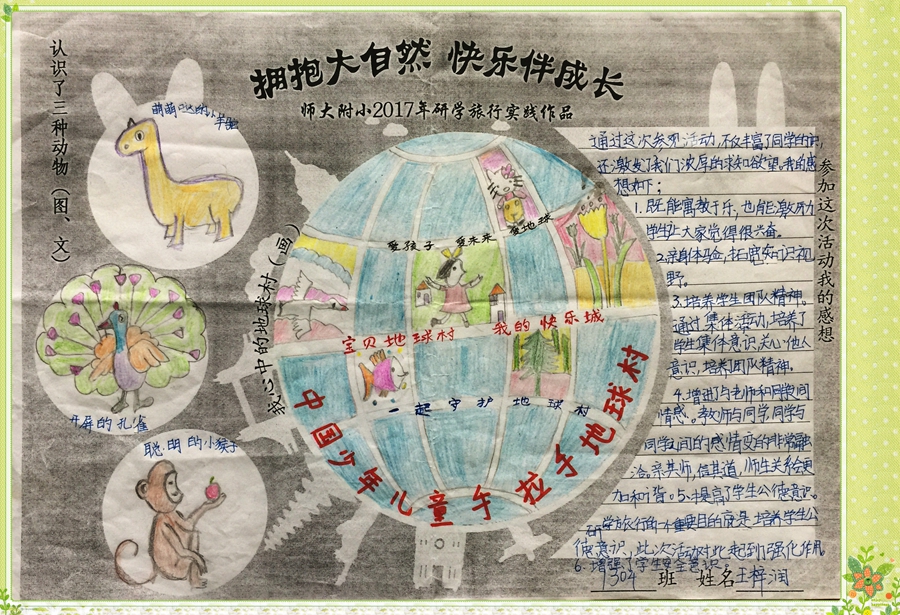 拥抱大自然 快乐伴成长
师大附小2017年研学旅行实践作品
认识了三种动物（图、文）
萌萌哒的小羊驼
开屏的孔雀
聪明的小猴子
我心中的地球村（画）
爱孩子 爱未来 爱地球
宝贝地球村 我的快乐城
一起守护地球村
中国少年儿童手拉手地球村
参加这次活动我的感想
通过这次参观活动，不仅丰富了同学的
还激发了我们浓厚的求知欲望。我的感
想如下：
1.既能寓教于乐，也能激励
学生，大家觉得很兴奋。
2.亲身体验，拓宽知识视
野。
3.培养学生团队精神。
通过集体活动，培养了
学生集体意识，关心他人
意识，培养团队精神。
4.增进与老师和同学间
情感。教师与同学同学与
同学之间的感情变的非常融
洽。亲其师，信其道，师生关系会更
加和谐。5.提高了学生公德意识。
研学旅行的一个重要目的就是培养学生公
德意识，此次活动对此起到了强化作用
6.增强了学生安全意识。
1304 班 姓名王梓润